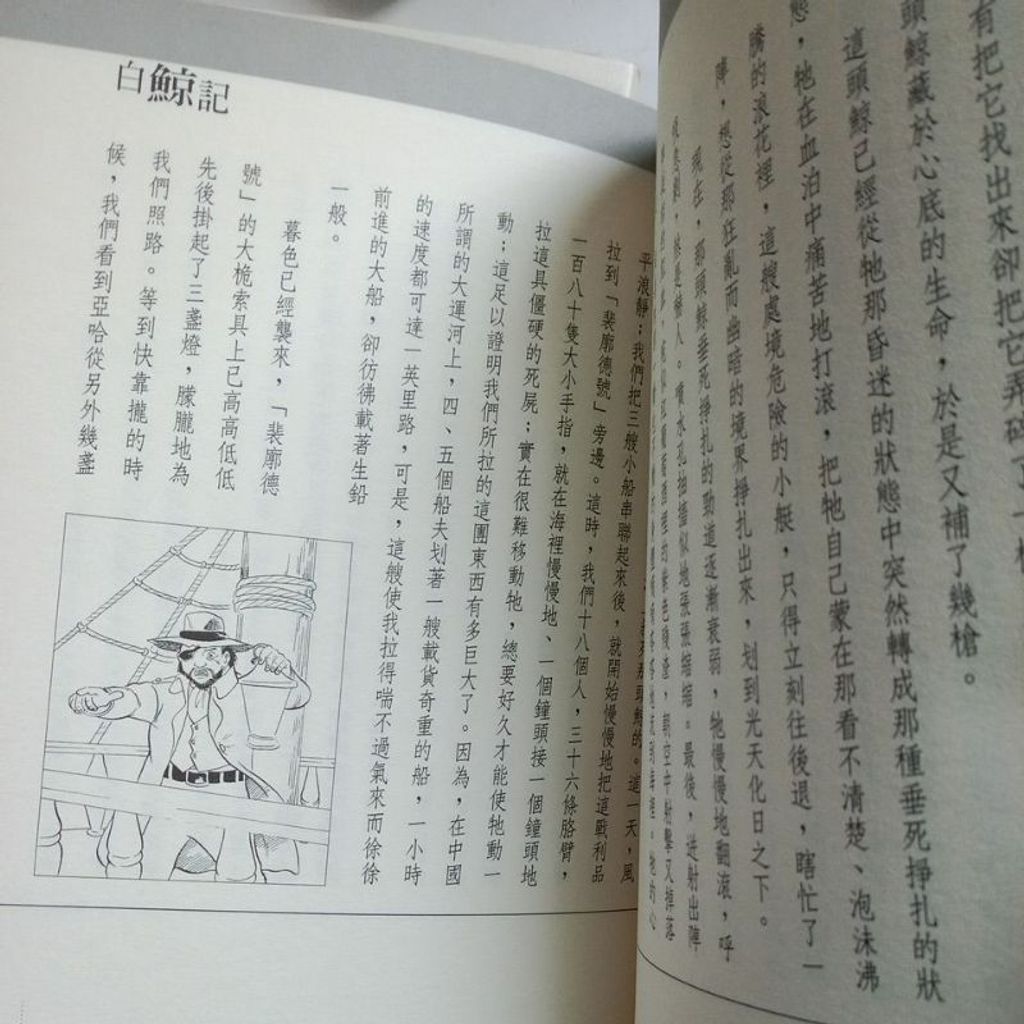 有把它找出來卻把它弄破了一
頭鯨藏於心底的生命，於是又補了幾槍。
這頭鯨已經從牠那昏迷的狀態中突然轉成那種垂死掙扎的狀
態，牠在血泊中痛苦地打滾，把牠自己蒙在那看不清楚、泡沫沸
騰的浪花裡，這艘處境危險的小艇，只得立刻往後退，瞎忙了一
陣，想從那狂亂而幽暗的境界掙扎出來，划到光天化日之下。
現在，那頭鯨垂死掙扎的勁道逐漸衰弱，牠慢慢地翻滾，呼
急劇，煞是嚇人。噴水孔抽搐似地張張縮縮。最後，迸射出陣
白鯨記
平浪靜；我們把三艘小船串聯起來後，就開始慢慢地把這戰利品
拉到「裴廓德號」旁邊。這時，我們十八個人，三十六條胳臂，
一百八十隻大小手指，就在海裡慢慢地、一個鐘頭接一個鐘頭地
拉這具僵硬的死屍；實在很難移動牠，總要好久才能使牠動一
動；這足以證明我們所拉的這團東西有多巨大了。因為，在中國
所謂的大運河上，四、五個船夫划著一艘載貨奇重的船，一小時
的速度都可達一英里路，可是，這艘使我拉得喘不過氣來而徐徐
前進的大船，卻彷彿載著生鉛
一般。
暮色已經襲來，「裴廓德
號」的大桅索具上已高高低低
先後掛起了三盞燈，朦朧地為
我們照路。等到快靠攏的時
候，我們看到亞哈從另外幾盞